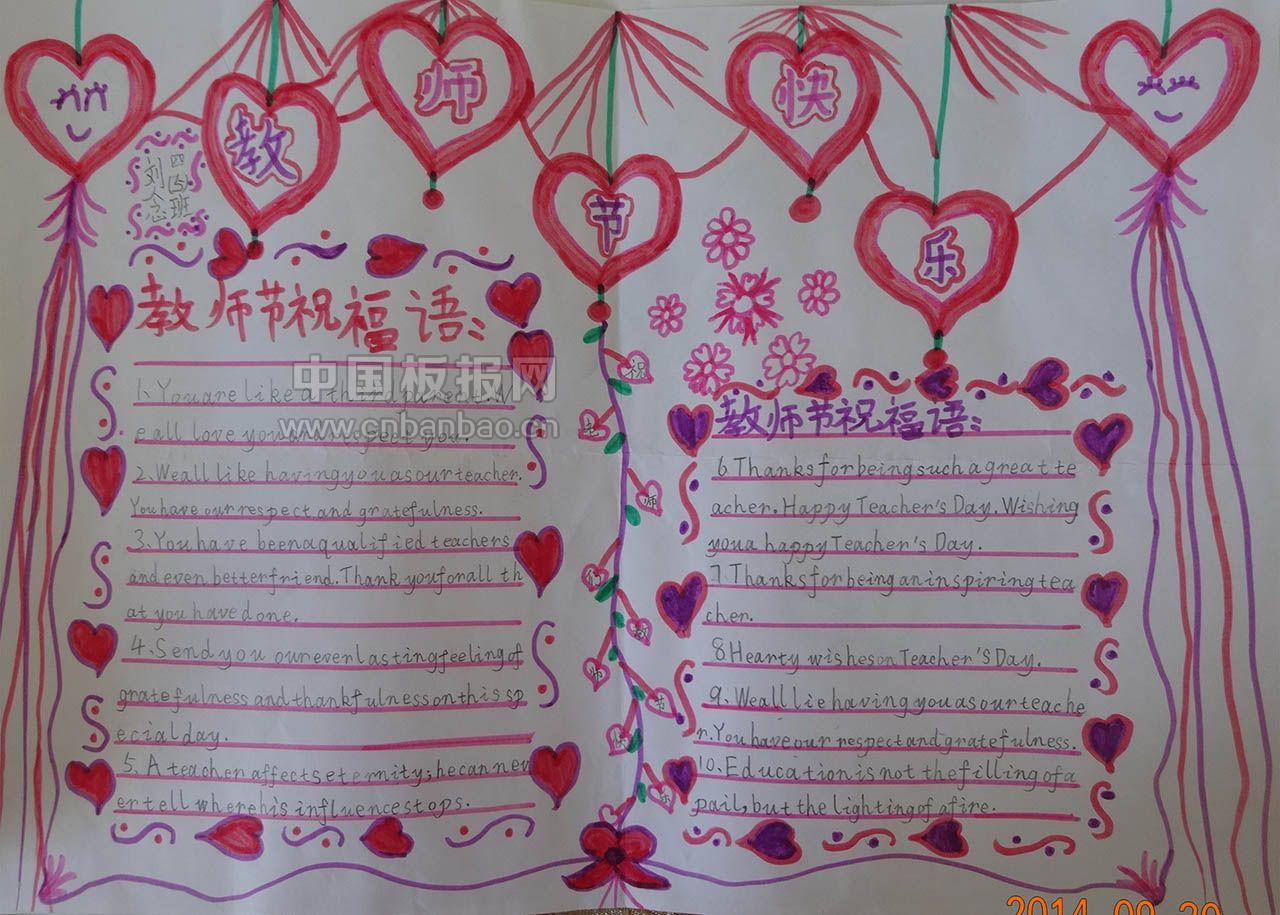 教师节快乐
四(5)班
刘念
教师节祝福语:
中国板报网
www.cnbanbao.cn
1、You are like a third parent. W
e all love you and respect you.
2、We all like having you as our teacher.
You have our respect and gratefulness.
3、You have been a qualified teachers
and even better friend. Thank you for all th
at you have done.
4、Send you our everlasting feeling of
gratefulness and thankfulness on this sp
ecial day.
5、A teacher affects eternity; he can nev
er tell where his influence stops.
祝
老
师
们
教
师
节
快
乐
教师节祝福语:
6.Thanks for being such a great te
acher. Happy Teacher's Day. Wishing
you a happy Teacher's Day.
7.Thanks for being an inspiring tea
cher.
8 Hearty wishes on Teacher's Day.
9、We all lie having you as our teache
r. You have our respect and gratefulness.
10、Education is not the filling of a
pail, but the lighting of a fire.